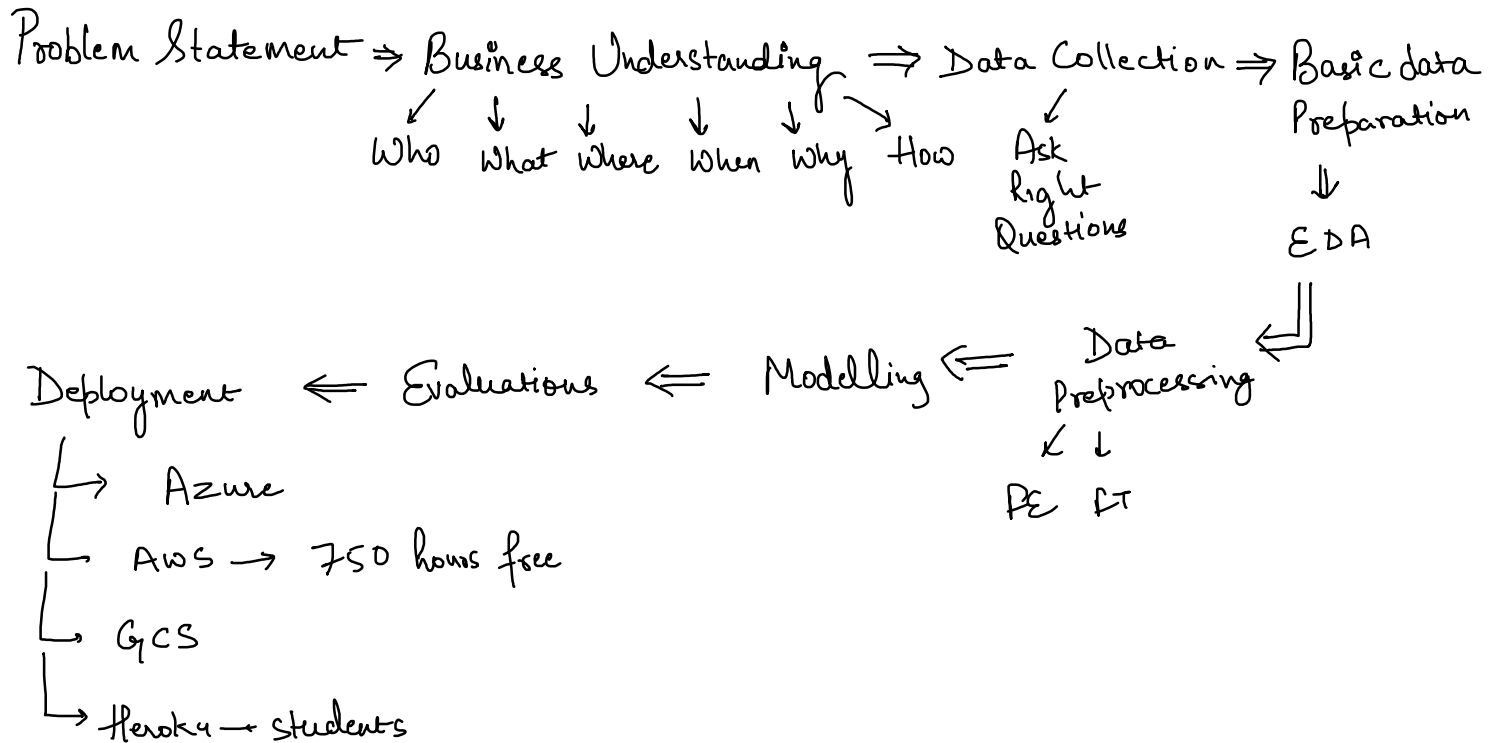 Problem Statement ⇒ Business Understanding ⇒ Data Collection ⇒ Basic data
Preparation
Who What Where When Why How
Ask
Right
Questions
EDA
Data
Preprocessing
Deployment ⇐ Evaluations ⇐ Modelling ⇐
FE FT
→ Azure
AWS → 750 hours free
GCS
→ Heroku → students